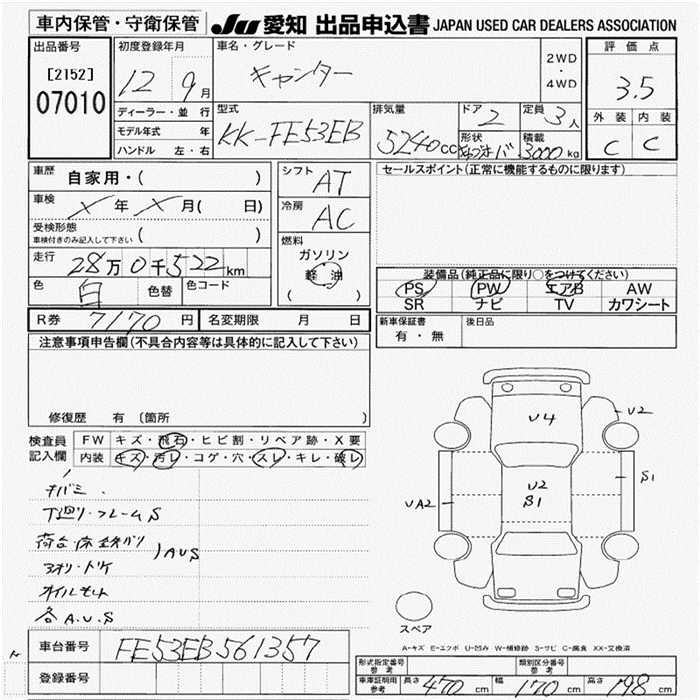 車内保管・守衛保管 JU愛知 出品申込書 JAPAN USED CAR DEALERS ASSOCIATION
出品番号
[2152]
07010
初度登録年月
12 9月
ディーラー・並行
モデル年式 年
ハンドル 左・右
車名・グレード
キャンター
2WD
・
4WD
型式
KK-FE53EB
排気量
5240cc
ドア
2
定員
3人
形状
積載
3000kg
評価点
3.5
外装 内装
C C
車歴
自家用・( )
車検
X年X月( 日)
受検形態
車検付きのみ記入して下さい ( )
走行
28万0千522km
色
白 色替 色コード
シフト
AT
冷房
AC
燃料
ガソリン
軽油
( )
R券 7170円 名変期限 月 日
セールスポイント(正常に機能するものに限ります)
装備品(純正品に限り○をつけてください)
PS PW エアB AW
SR ナビ TV カワシート
新車保証書
有・無
後日品
注意事項申告欄(不具合内容等は具体的に記入して下さい)
修復歴 有 (箇所 )
検査員
記入欄
FW キズ・飛石・ヒビ割・リペア跡・X要
内装 キズ・汚レ・コゲ・穴・スレ・キレ・破レ
下廻り・フレームS
荷台・床鉄バリ
アオリ・トケ
AUS
オイルモレ
各A.U.S
U4
U2
U2
S1
S1
UA2
スペア
A-キズ E-エクボ U-凹み W-補修跡 S-サビ C-腐食 XX-交換済
車台番号 FE53EB561357
登録番号
形式指定番号
参考
類別区分番号
参考
車庫証明用
参考
長さ 470cm 幅 170cm 高さ 198cm